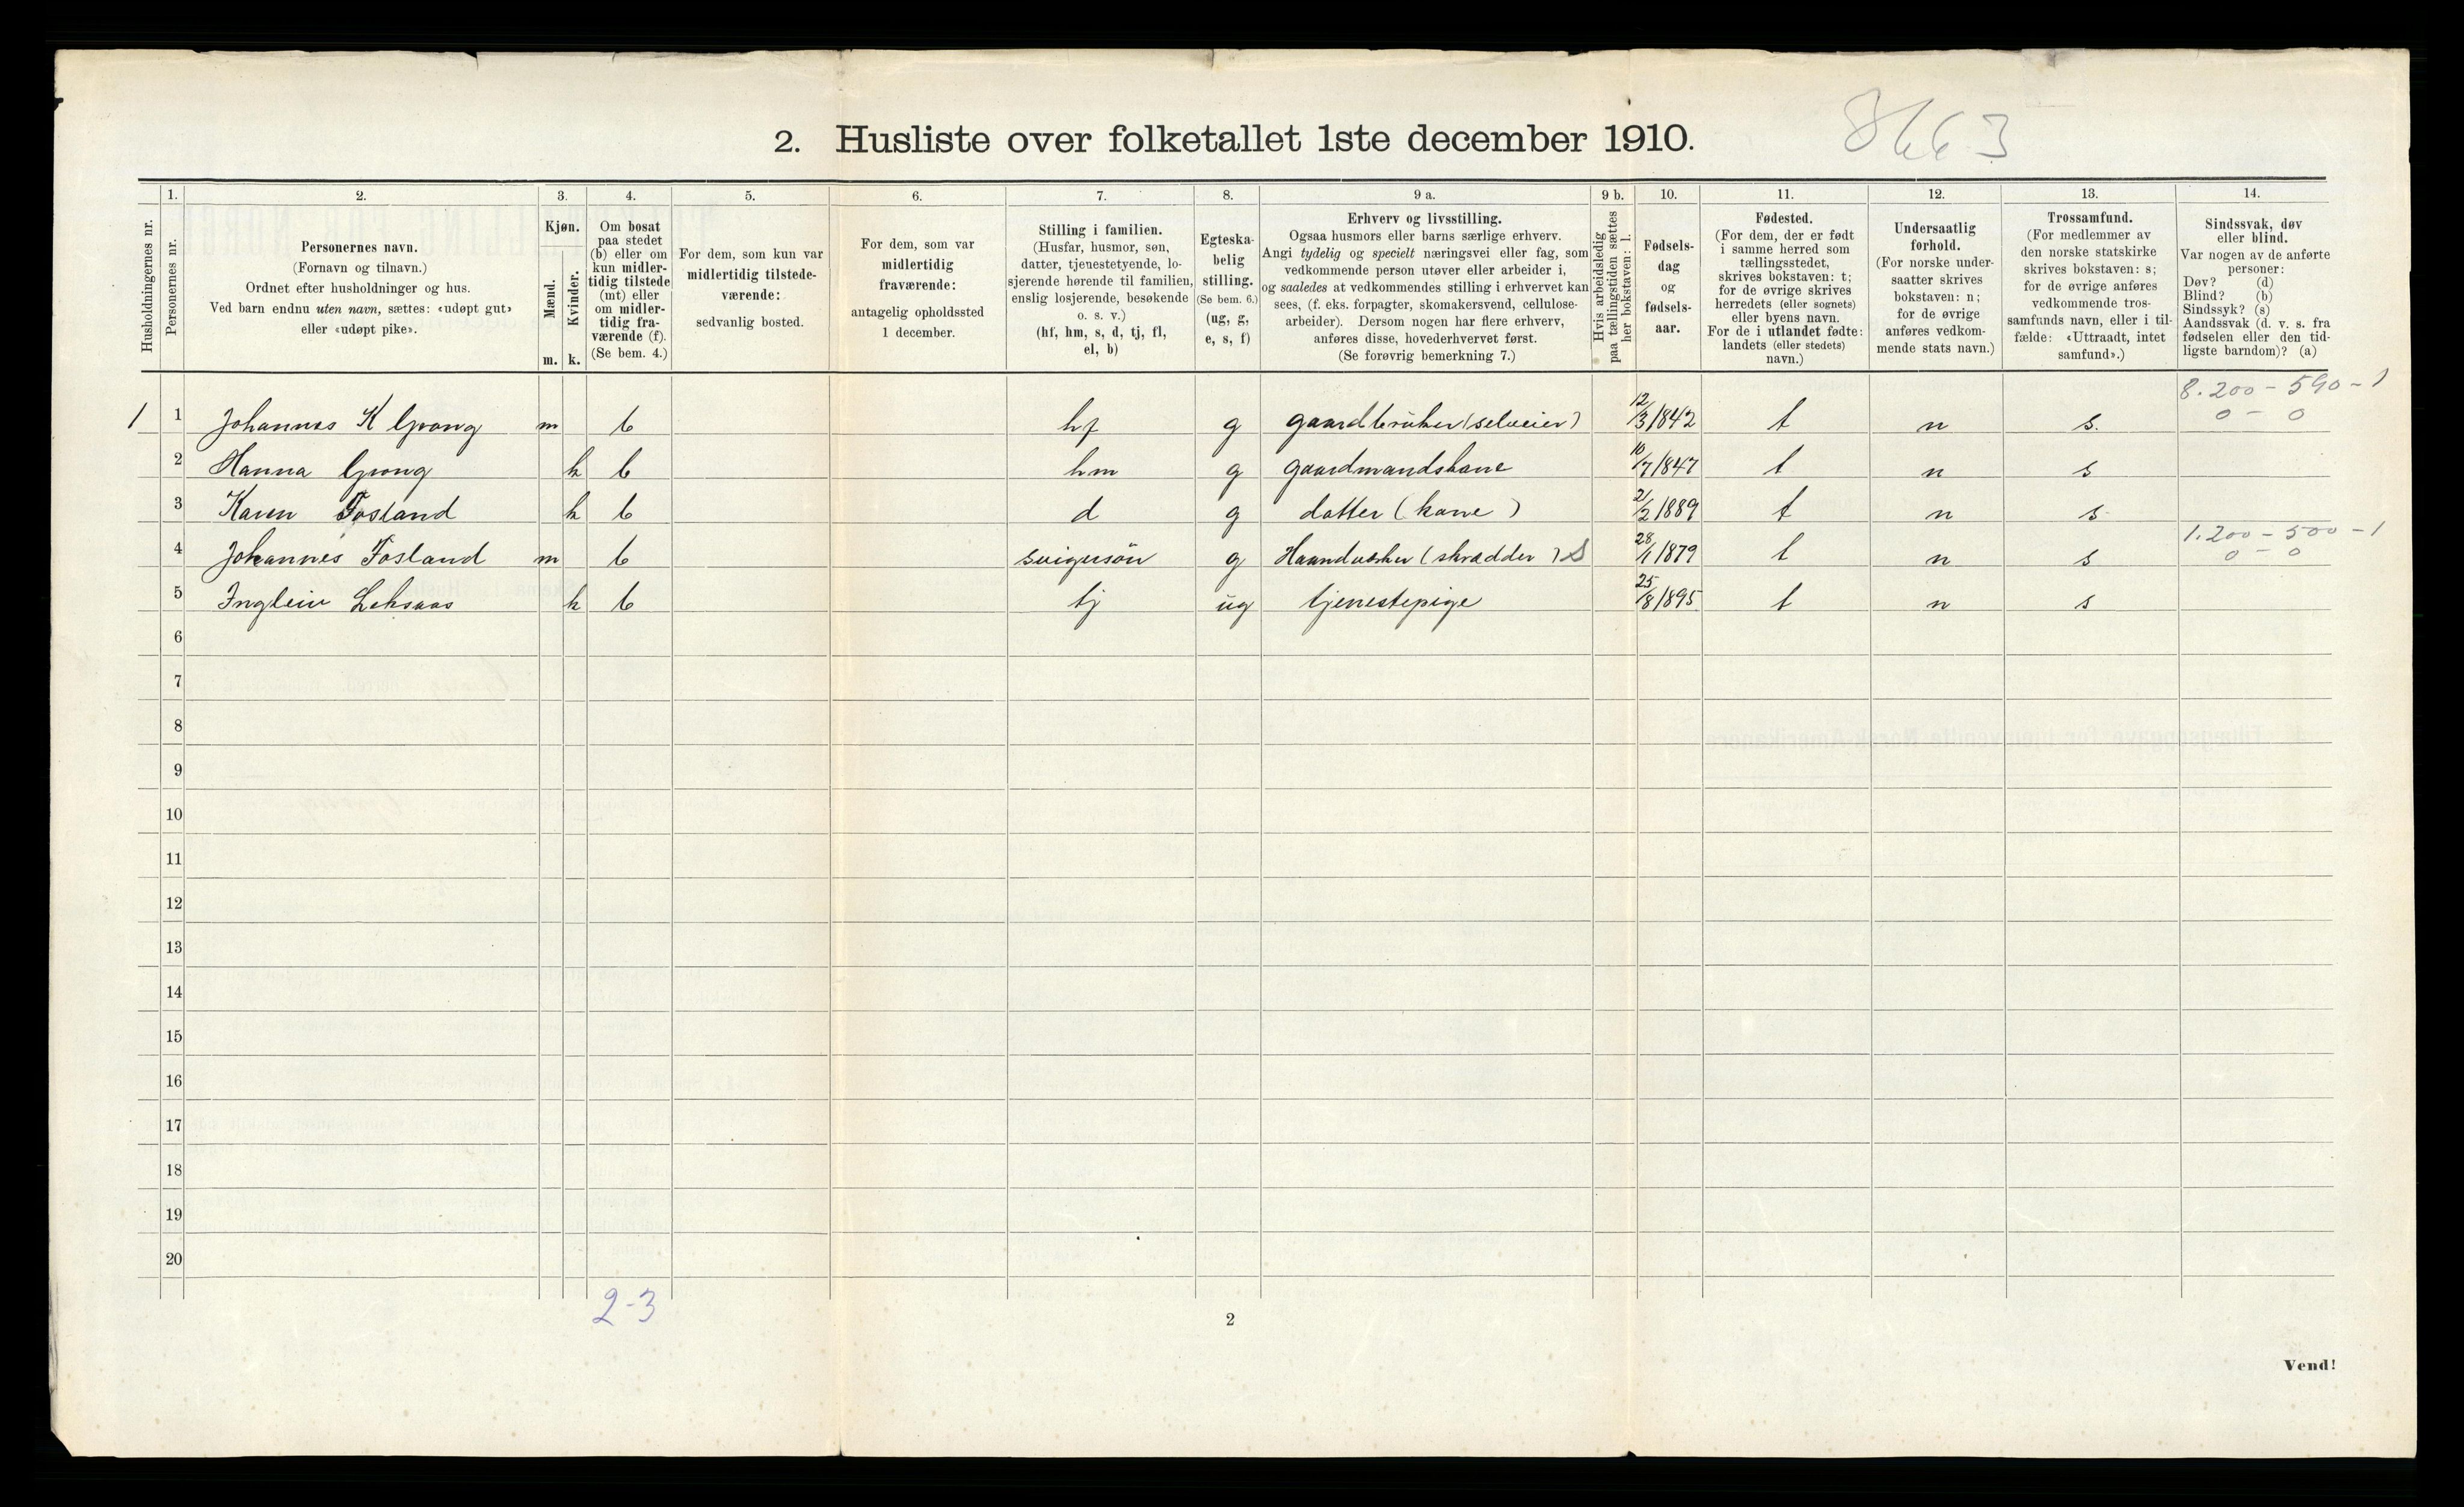 2. Husliste over folketallet 1ste december 1910.
8663
Husholdningernes nr.
1.
Personernes nr.
2.
Personernes navn.
(Fornavn og tilnavn.)
Ordnet efter husholdninger og hus.
Ved barn endnu uten navn, sættes: «udøpt gut»
eller «udøpt pike».
3.
Kjøn.
Mænd.
m.
Kvinder.
k.
4.
Om bosat
paa stedet
(b) eller om
kun midler-
tidig tilstede
(mt) eller
om midler-
tidig fra-
værende (f).
(Se bem. 4.)
5.
For dem, som kun var
midlertidig tilstede-
værende:
sedvanlig bosted.
6.
For dem, som var
midlertidig
fraværende:
antagelig opholdssted
1 december.
7.
Stilling i familien.
(Husfar, husmor, søn,
datter, tjenestetyende, lo-
sjerende hørende til familien,
enslig losjerende, besøkende
o. s. v.)
(hf, hm, s, d, tj, fl,
el, b)
8.
Egteska-
belig
stilling.
(Se bem. 6.)
(ug, g,
e, s, f)
9 a.
Erhverv og livsstilling.
Ogsaa husmors eller barns særlige erhverv.
Angi tydelig og specielt næringsvei eller fag, som
vedkommende person utøver eller arbeider i,
og saaledes at vedkommendes stilling i erhvervet kan
sees, (f. eks. forpagter, skomakersvend, cellulose-
arbeider). Dersom nogen har flere erhverv,
anføres disse, hovederhvervet først.
(Se forøvrig bemerkning 7.)
9 b.
Hvis arbeidsledig
paa tællingstiden sættes
her bokstaven: l.
10.
Fødsels-
dag
og
fødsels-
aar.
11.
Fødested.
(For dem, der er født
i samme herred som
tællingsstedet,
skrives bokstaven: t;
for de øvrige skrives
herredets (eller sognets)
eller byens navn.
For de i utlandet fødte:
landets (eller stedets)
navn.)
12.
Undersaatlig
forhold.
(For norske under-
saatter skrives
bokstaven: n;
for de øvrige
anføres vedkom-
mende stats navn.)
13.
Trossamfund.
(For medlemmer av
den norske statskirke
skrives bokstaven: s;
for de øvrige anføres
vedkommende tros-
samfunds navn, eller i til-
fælde: «Uttraadt, intet
samfund».)
14.
Sindssvak, døv
eller blind.
Var nogen av de anførte
personer:
Døv? (d)
Blind? (b)
Sindssyk? (s)
Aandssvak (d. v. s. fra
fødselen eller den tid-
ligste barndom)? (a)
8.200 - 590 - 1
0 - 0
1 1 Johannes K Grong m b hf g gaardbruker (selveier) 12/3 1842 t n s.
2 Hanna Grong k b hm g gaardmandskone 10/7 1847 t n s
3 Karen Fosland k b d g datter (kone) 21/2 1889 t n s
1.200 - 500 - 1
0 - 0
4 Johannes Fosland m b svigersön g Haandverker (skrædder) S 28/1 1879 t n s
5 Inglein Leksaas k b tj ug tjenestepige 25/8 1895 t n s
6
7
8
9
10
11
12
13
14
15
16
17
18
19
20
2-3
2
Vend!